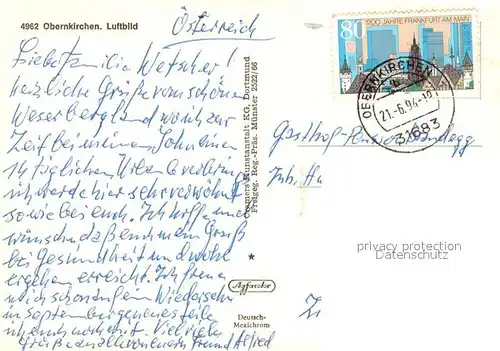 4962 Obernkirchen. Luftbild
Österreich
Liebe Familie Wetscher!
herzliche Grüße vom schönen
Weserbergland wo ich zur
Zeit bei meinem Sohn einen
14 tägigen Urlaub verbring
ich werde hier sehr verwöhnt
so wie bei euch. Ich hoffe und
wünsche, daß euch mein Gruß
bei Gesundheit und wohl
ergehen erreicht. Ich freue
mich schon auf ein Wiedersehn
in September genaues teile
ich euch noch mit. Viel viele
Grüße an alle von eurem Freund Alfred
Cramers Kunstanstalt KG, Dortmund
Freigeg. Reg.-Präs. Münster 2522/66
Agfacolor
Deutsch-
Mexichrom
80
1200 JAHRE FRANKFURT AM MAIN
OBERNKIRCHEN
21.-6.94
31683
Gasthof-Pension
Inh.
privacy protection
Datenschutz